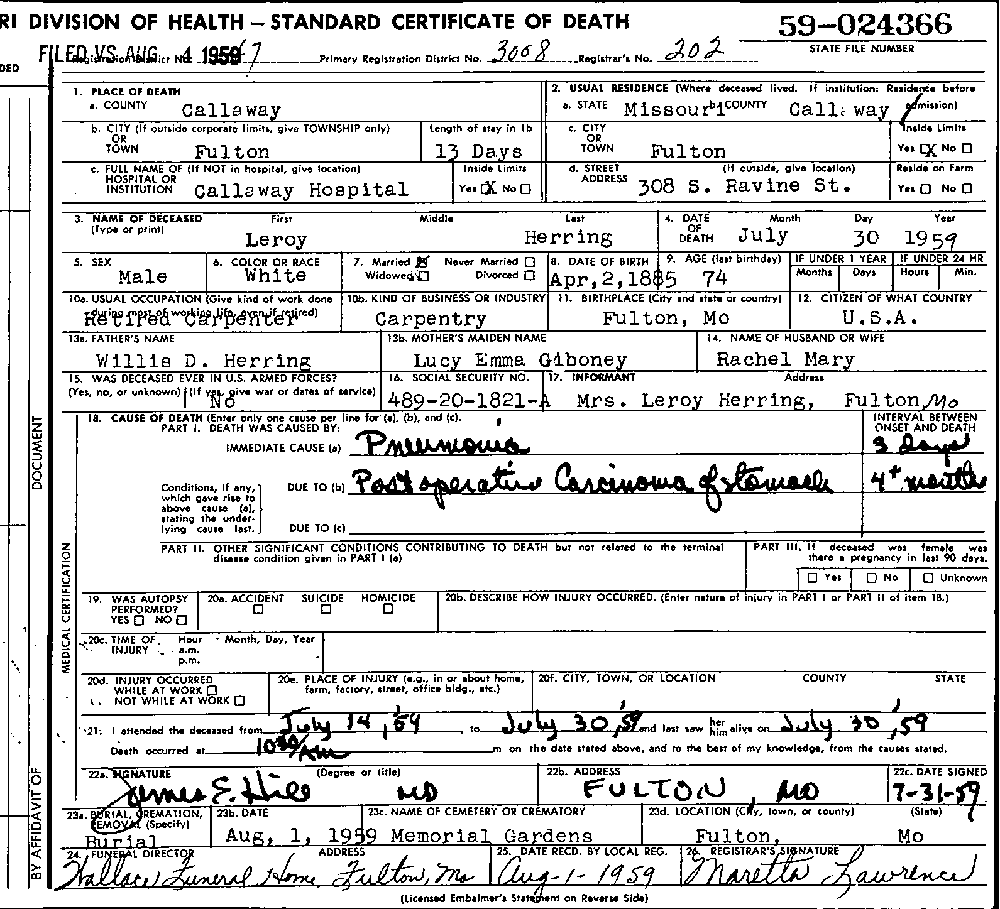 RI DIVISION OF HEALTH — STANDARD CERTIFICATE OF DEATH
59-024366
STATE FILE NUMBER
FILED VS AUG 4 1959
Registration District No. Primary Registration District No. 3008 Registrar's No. 202
DED
1. PLACE OF DEATH
a. COUNTY Callaway
2. USUAL RESIDENCE (Where deceased lived. If institution: Residence before admission)
a. STATE Missouri b. COUNTY Callaway
b. CITY (If outside corporate limits, give TOWNSHIP only) OR TOWN Fulton
Length of stay in 1b 13 Days
c. CITY OR TOWN Fulton
Inside Limits Yes X No
c. FULL NAME OF (If NOT in hospital, give location) HOSPITAL OR INSTITUTION Callaway Hospital
Inside Limits Yes X No
d. STREET ADDRESS (If outside, give location) 308 S. Ravine St.
Reside on Farm Yes No
3. NAME OF DECEASED (Type or print) First Middle Last
Leroy Herring
4. DATE OF DEATH Month Day Year
July 30 1959
5. SEX Male
6. COLOR OR RACE White
7. Married X Never Married Widowed Divorced
8. DATE OF BIRTH Apr,2,1885
9. AGE (last birthday) 74
IF UNDER 1 YEAR Months Days
IF UNDER 24 HR Hours Min.
10a. USUAL OCCUPATION (Give kind of work done during most of working life, even if retired) Retired Carpenter
10b. KIND OF BUSINESS OR INDUSTRY Carpentry
11. BIRTHPLACE (City and state or country) Fulton, Mo
12. CITIZEN OF WHAT COUNTRY U.S.A.
13a. FATHER'S NAME Willis D. Herring
13b. MOTHER'S MAIDEN NAME Lucy Emma Giboney
14. NAME OF HUSBAND OR WIFE Rachel Mary
15. WAS DECEASED EVER IN U.S. ARMED FORCES? (Yes, no, or unknown) (If yes, give war or dates of service) No
16. SOCIAL SECURITY NO. 489-20-1821-A
17. INFORMANT Address
Mrs. Leroy Herring, Fulton, Mo
18. CAUSE OF DEATH (Enter only one cause per line for (a), (b), and (c).
PART I. DEATH WAS CAUSED BY:
INTERVAL BETWEEN ONSET AND DEATH
IMMEDIATE CAUSE (a) Pneumonia 3 days
Conditions, if any, which gave rise to above cause (a), stating the underlying cause last.
DUE TO (b) Post operative Carcinoma of stomach 4+ months
DUE TO (c)
PART II. OTHER SIGNIFICANT CONDITIONS CONTRIBUTING TO DEATH but not related to the terminal disease condition given in PART I (a)
PART III. If deceased was female was there a pregnancy in last 90 days.
Yes No Unknown
19. WAS AUTOPSY PERFORMED? YES NO
20a. ACCIDENT SUICIDE HOMICIDE
20b. DESCRIBE HOW INJURY OCCURRED. (Enter nature of injury in PART I or PART II of item 18.)
20c. TIME OF INJURY Hour a.m. p.m. Month, Day, Year
20d. INJURY OCCURRED WHILE AT WORK NOT WHILE AT WORK
20e. PLACE OF INJURY (e.g., in or about home, farm, factory, street, office bldg., etc.)
20f. CITY, TOWN, OR LOCATION COUNTY STATE
21. I attended the deceased from July 14, 59, to July 30, 59 and last saw her him alive on July 30, 59
Death occurred at 10 AM m on the date stated above, and to the best of my knowledge, from the causes stated.
22a. SIGNATURE (Degree or title) James E. Hill MD
22b. ADDRESS FULTON, MO
22c. DATE SIGNED 7-31-59
23a. BURIAL, CREMATION, REMOVAL (Specify) Burial
23b. DATE Aug, 1, 1959
23c. NAME OF CEMETERY OR CREMATORY Memorial Gardens
23d. LOCATION (City, town, or county) (State) Fulton, Mo
24. FUNERAL DIRECTOR ADDRESS
Wallace Funeral Home Fulton, Mo
25. DATE RECD. BY LOCAL REG. Aug-1-1959
26. REGISTRAR'S SIGNATURE Maretta Lawrence
(Licensed Embalmer's Statement on Reverse Side)
DOCUMENT
MEDICAL CERTIFICATION
BY AFFIDAVIT OF